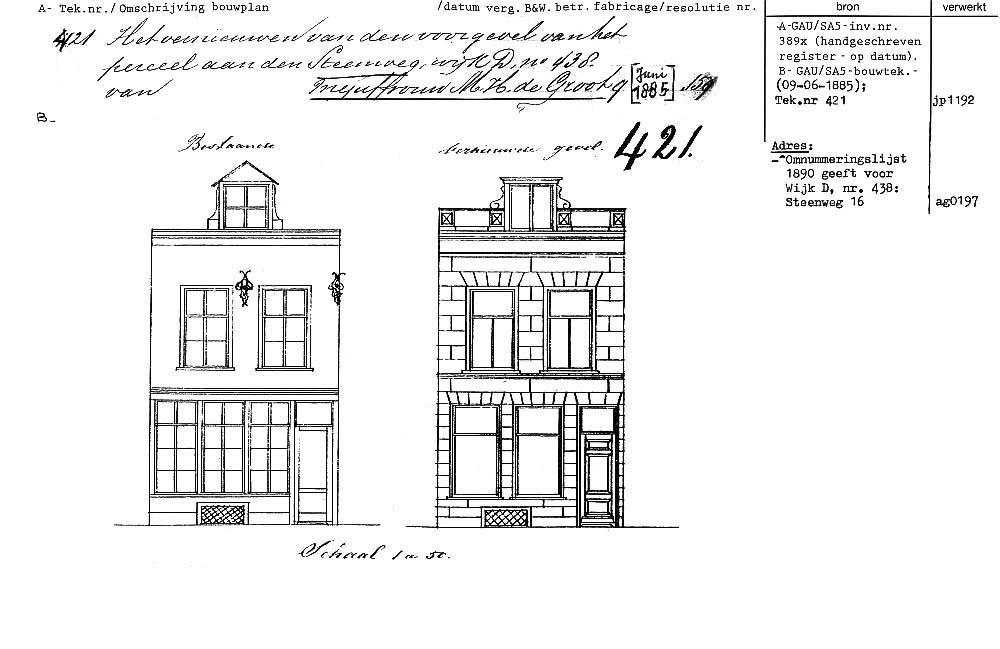 A- Tek.nr./ Omschrijving bouwplan /datum verg. B&W. betr. fabricage/resolutie nr. bron verwerkt
421 Het vernieuwen van den voorgevel van het
perceel aan den Steenweg, wijk D, no 438.
van M. H. de Groot [Juni 1885]
B-
421.
vernieuwde gevel.
Schaal 1 a 50.
A-GAU/SA5-inv.nr.
389x (handgeschreven
register - op datum).
B- GAU/SA5-bouwtek.-
(09-06-1885);
Tek.nr 421 jp1192
Adres:
-^Omnummeringslijst
1890 geeft voor
Wijk D, nr. 438:
Steenweg 16 ag0197